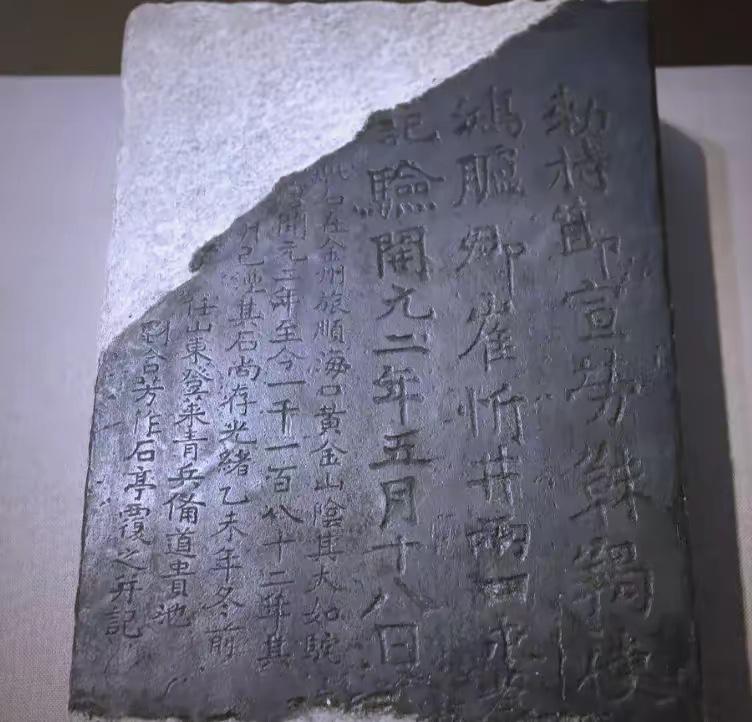 勅持節宣勞靺鞨使
鴻臚卿崔忻井兩口永爲
記驗開元二年五月十八日
此石在金州旅順海口黃金山陰其大如駝
開元二年至今一千一百八十二年其
井已湮其石尚存光緒乙未年冬前
任山東登萊青兵備道貴池
劉含芳作石亭覆之并記